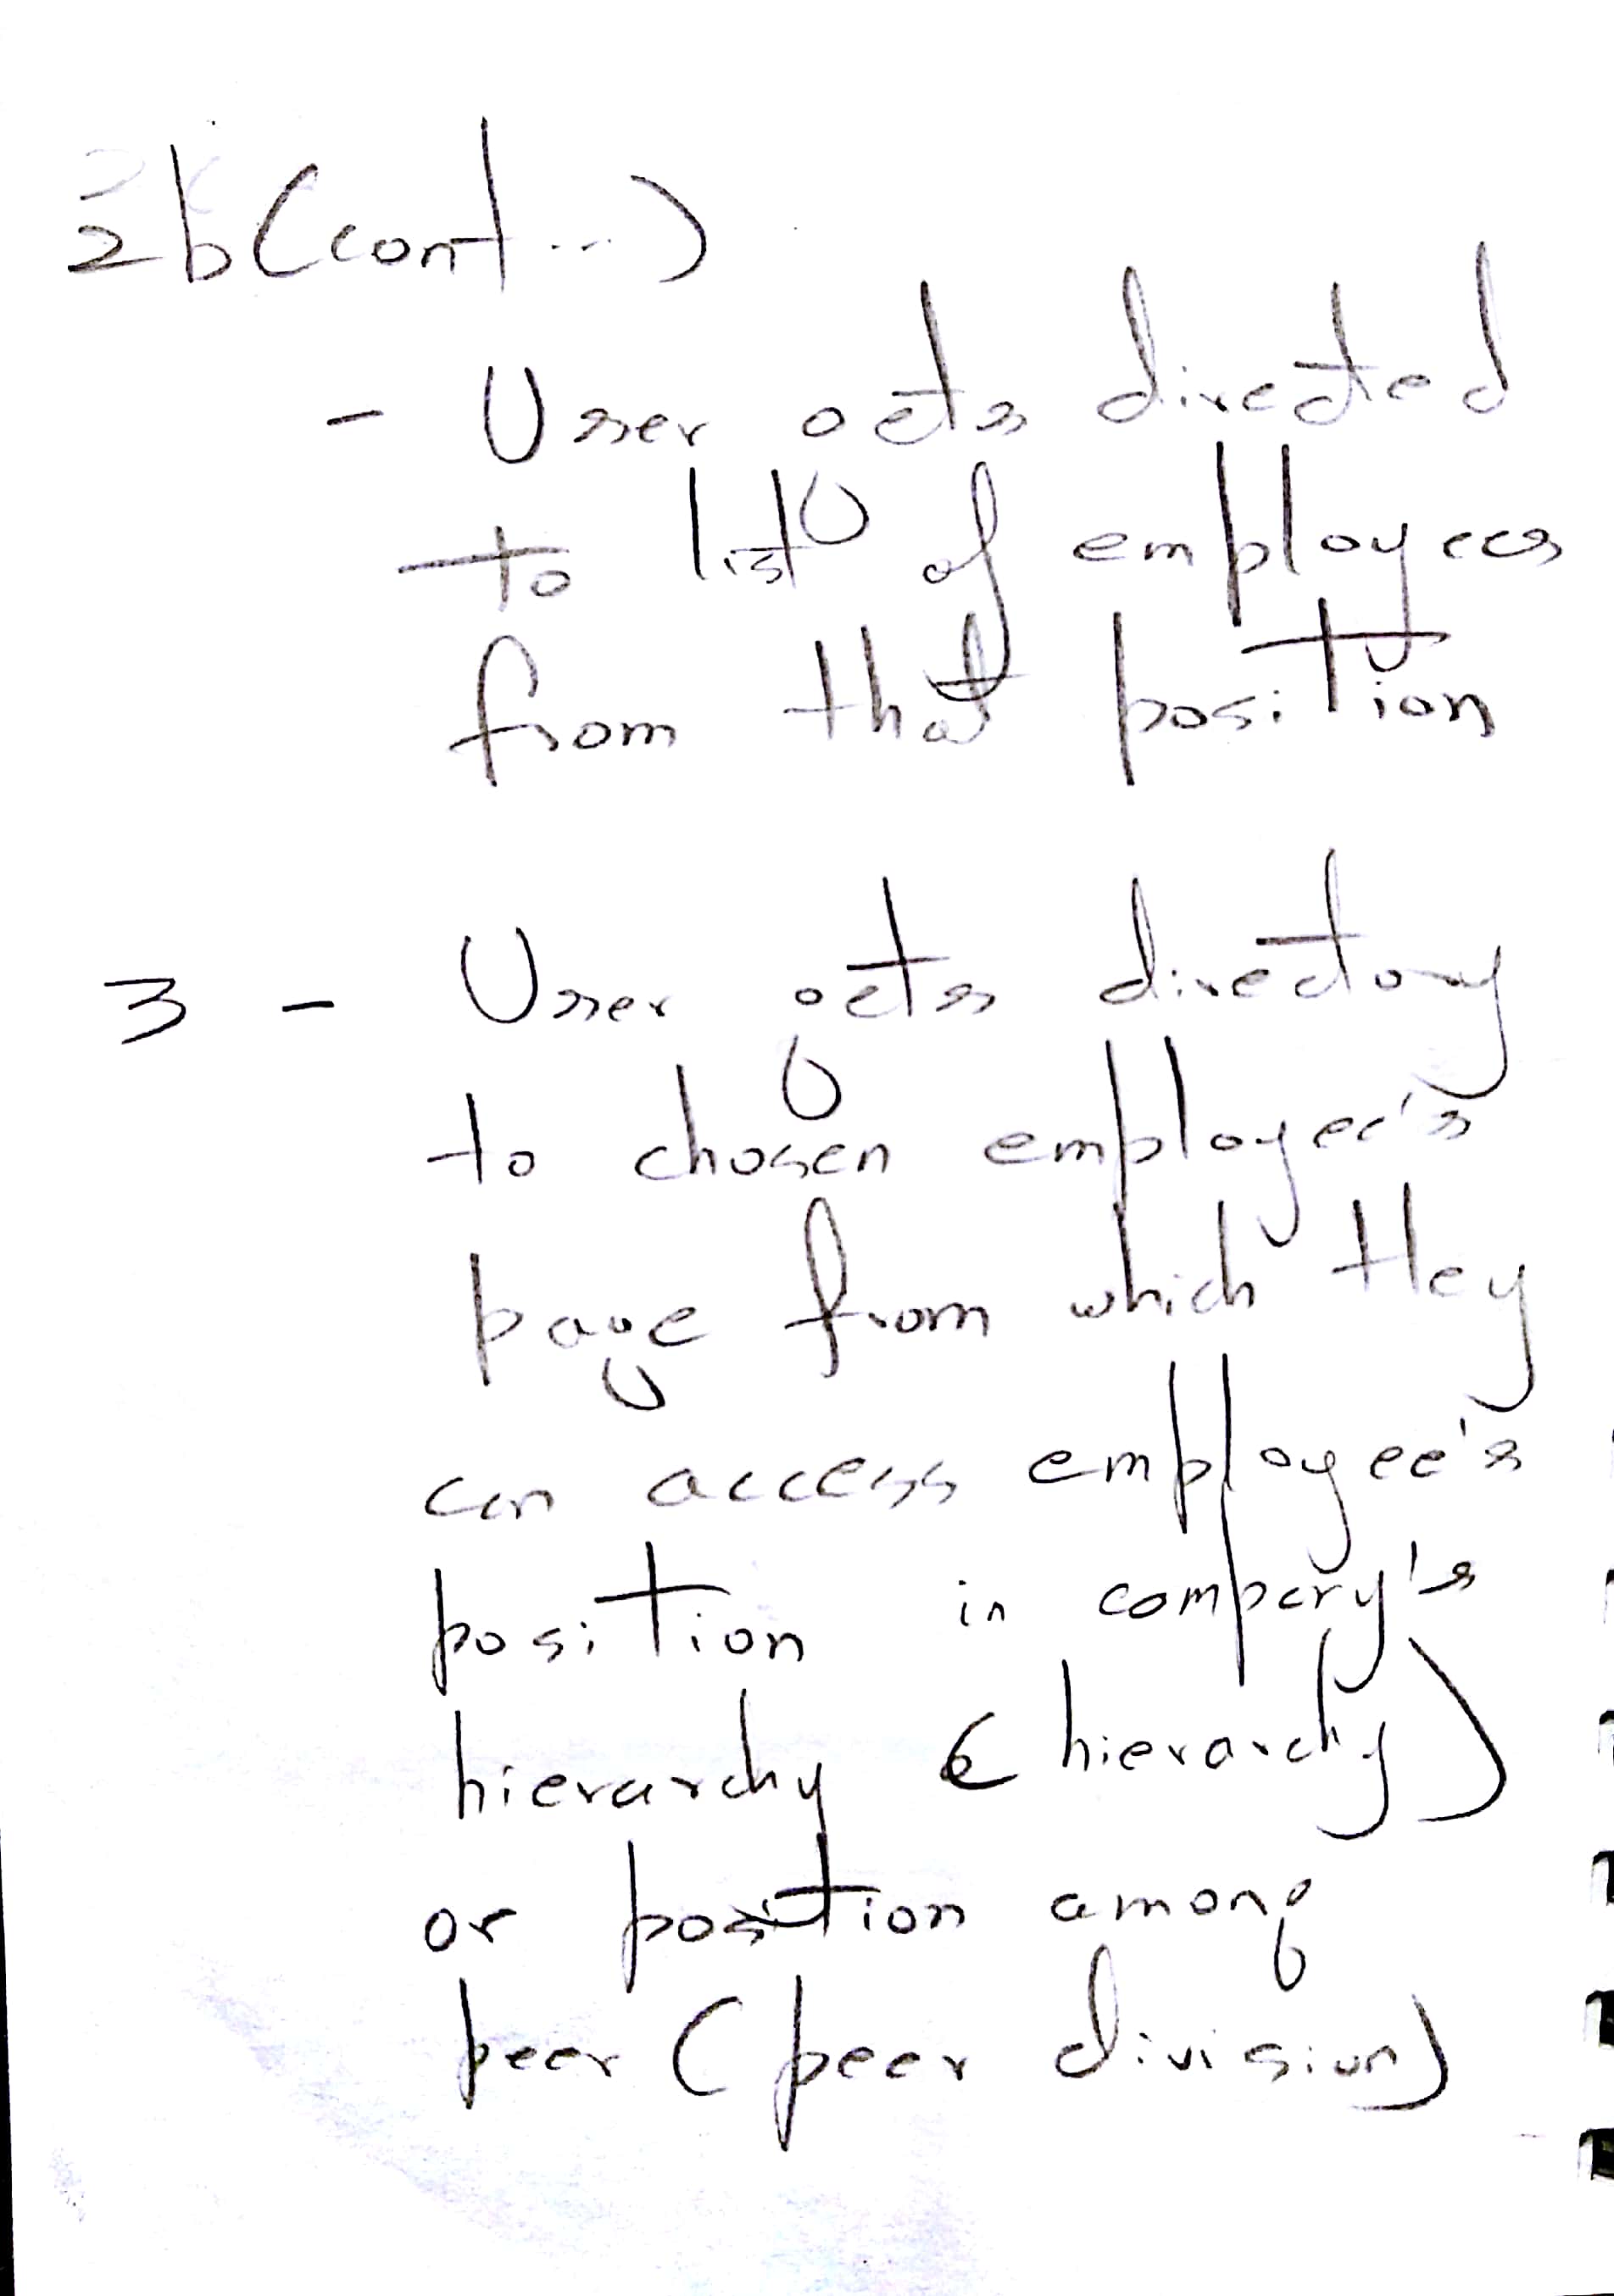 2b (cont...)
- User gets directed
to list of employees
from that position
3 - User gets directory
to chosen employee's
page from which they
can access employee's
position in company's
hierarchy (hierarchy)
or position among
peer (peer division)